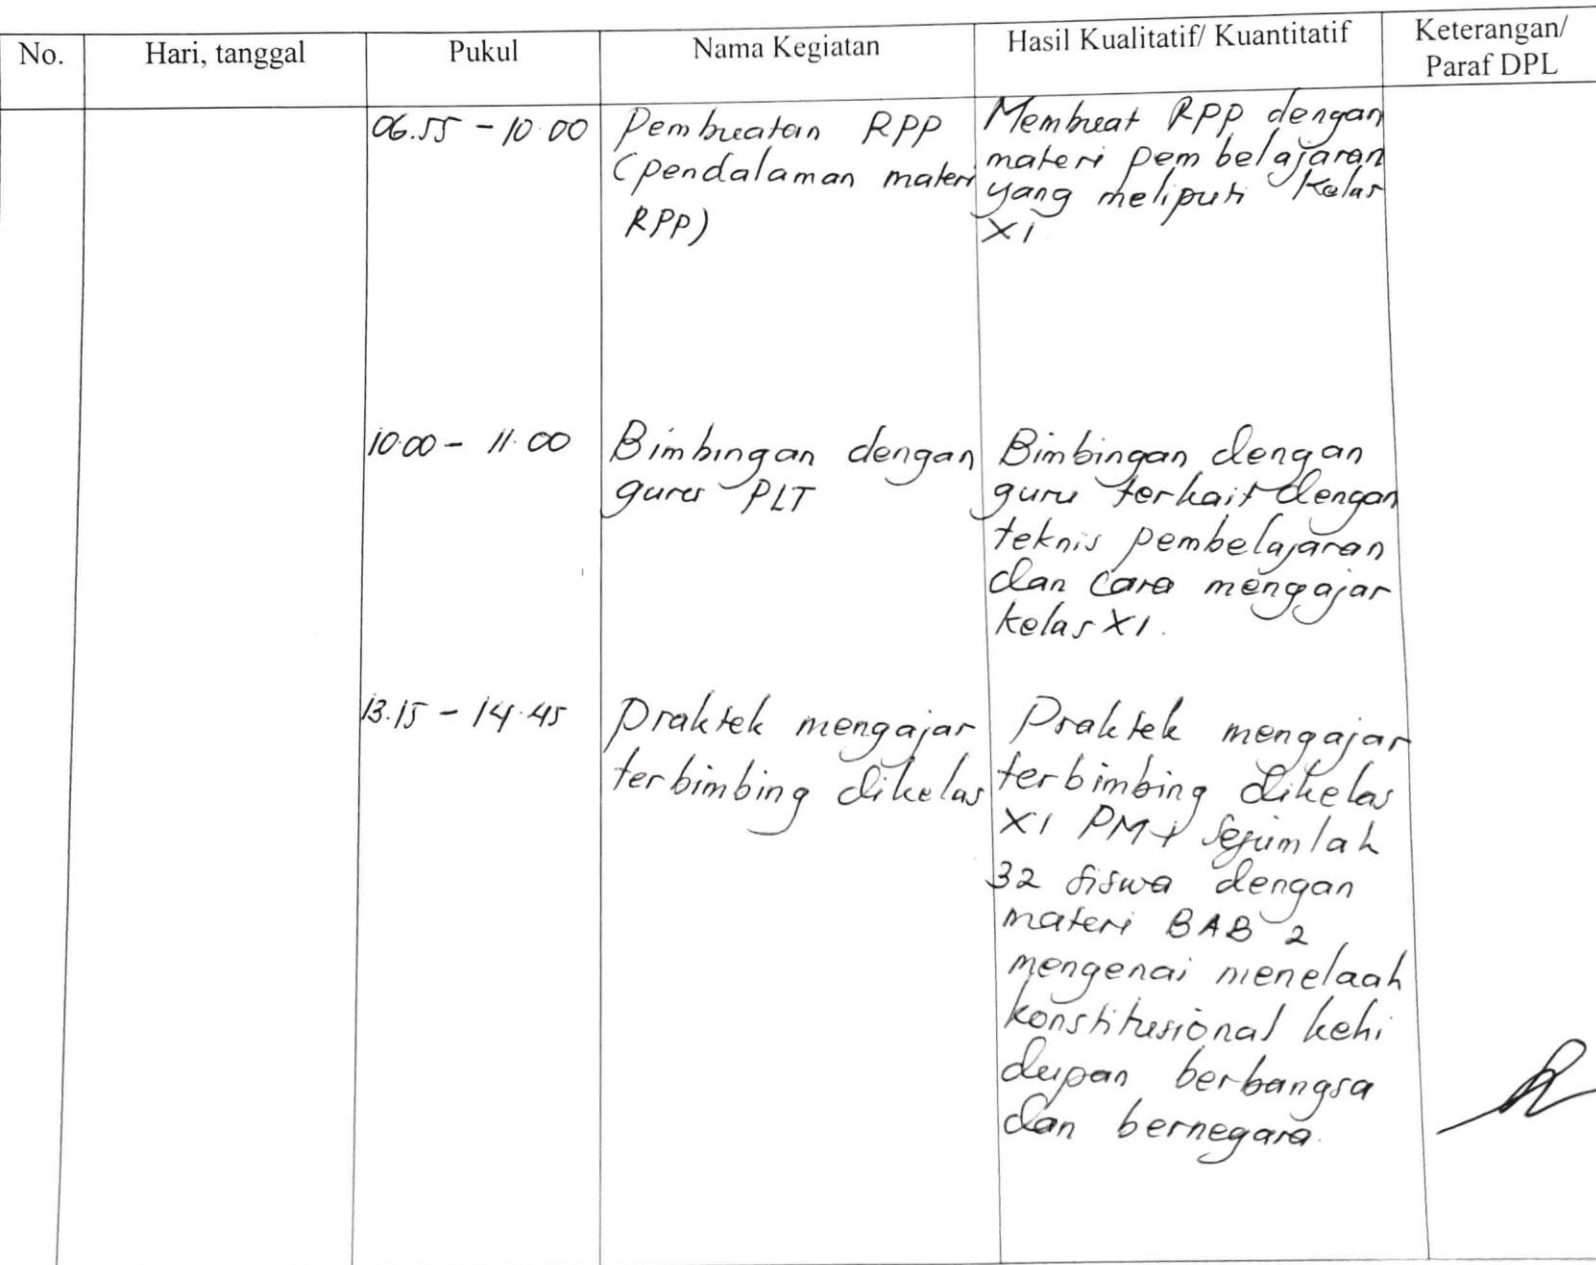 No. Hari, tanggal Pukul Nama Kegiatan Hasil Kualitatif/ Kuantitatif Keterangan/
Paraf DPL
06.55 - 10.00 Pembuatan RPP Membuat RPP dengan
(pendalaman materi materi pembelajaran
RPP) yang meliputi Kelas
XI
10.00 - 11.00 Bimbingan dengan Bimbingan dengan
guru PLT guru terkait dengan
teknis pembelajaran
dan cara mengajar
kelas XI.
13.15 - 14.45 Praktek mengajar Praktek mengajar
terbimbing dikelas terbimbing dikelas
XI PM sejumlah
32 siswa dengan
materi BAB 2
mengenai menelaah
konstitusional kehi
dupan berbangsa
dan bernegara.